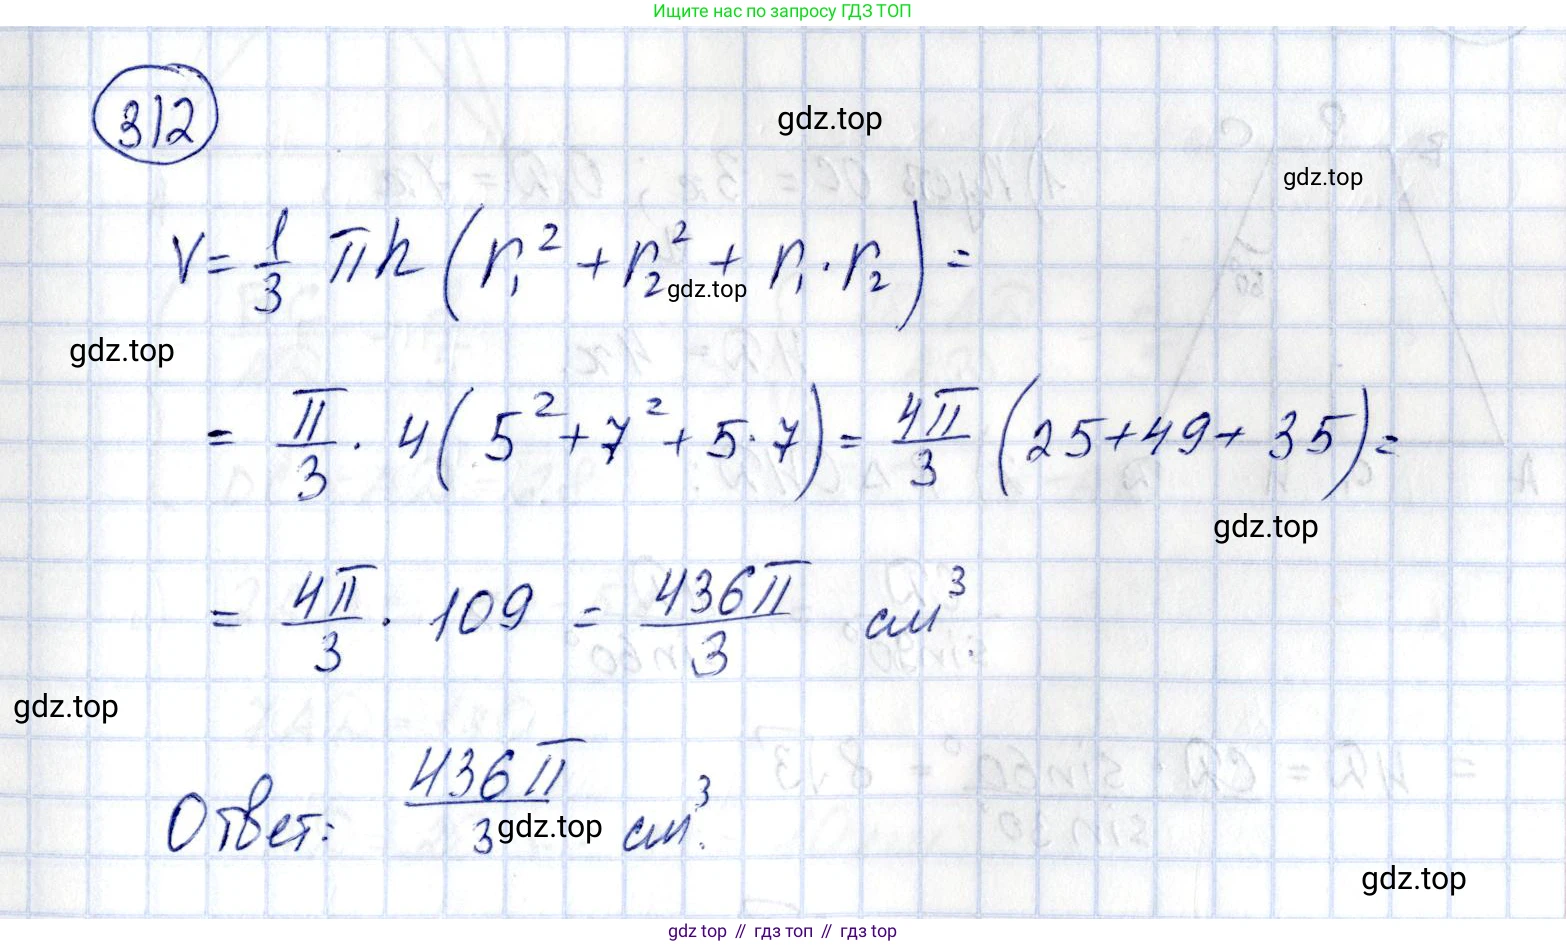 Ищите нас по запросу ГДЗ ТОП
312
gdz.top
gdz.top
V = 1/3 πh (r₁² + r₂² + r₁ · r₂) =
gdz.top
gdz.top
= π/3 · 4 (5² + 7² + 5 · 7) = 4π/3 (25 + 49 + 35) =
gdz.top
= 4π/3 · 109 = 436π/3 см³.
gdz.top
Ответ: 436π/3 см³.
gdz.top
gdz.top
gdz top // гдз топ // гдз top